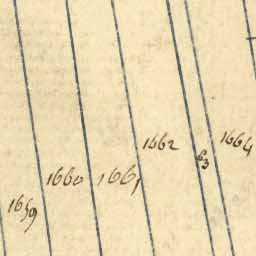 1659
1660
1661
1662
63
1664